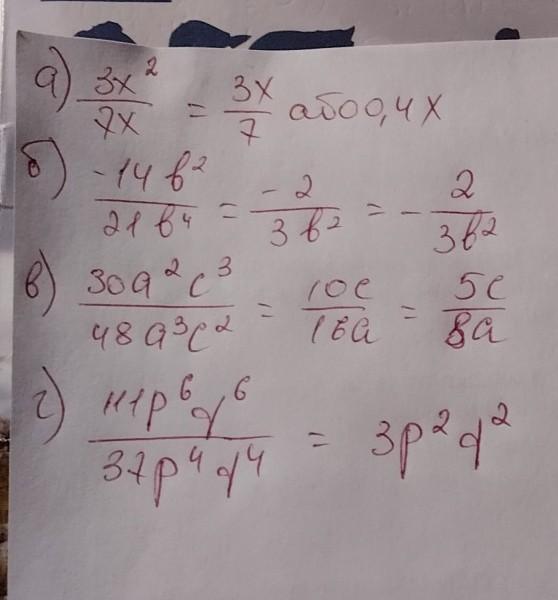 а) 3x²/7x = 3x/7 або 0,4x
б) -14b²/21b⁴ = -2/3b² = -2/3b²
в) 30a²c³/48a³c² = 10c/16a = 5c/8a
г) 111p⁶q⁶/37p⁴q⁴ = 3p²q²